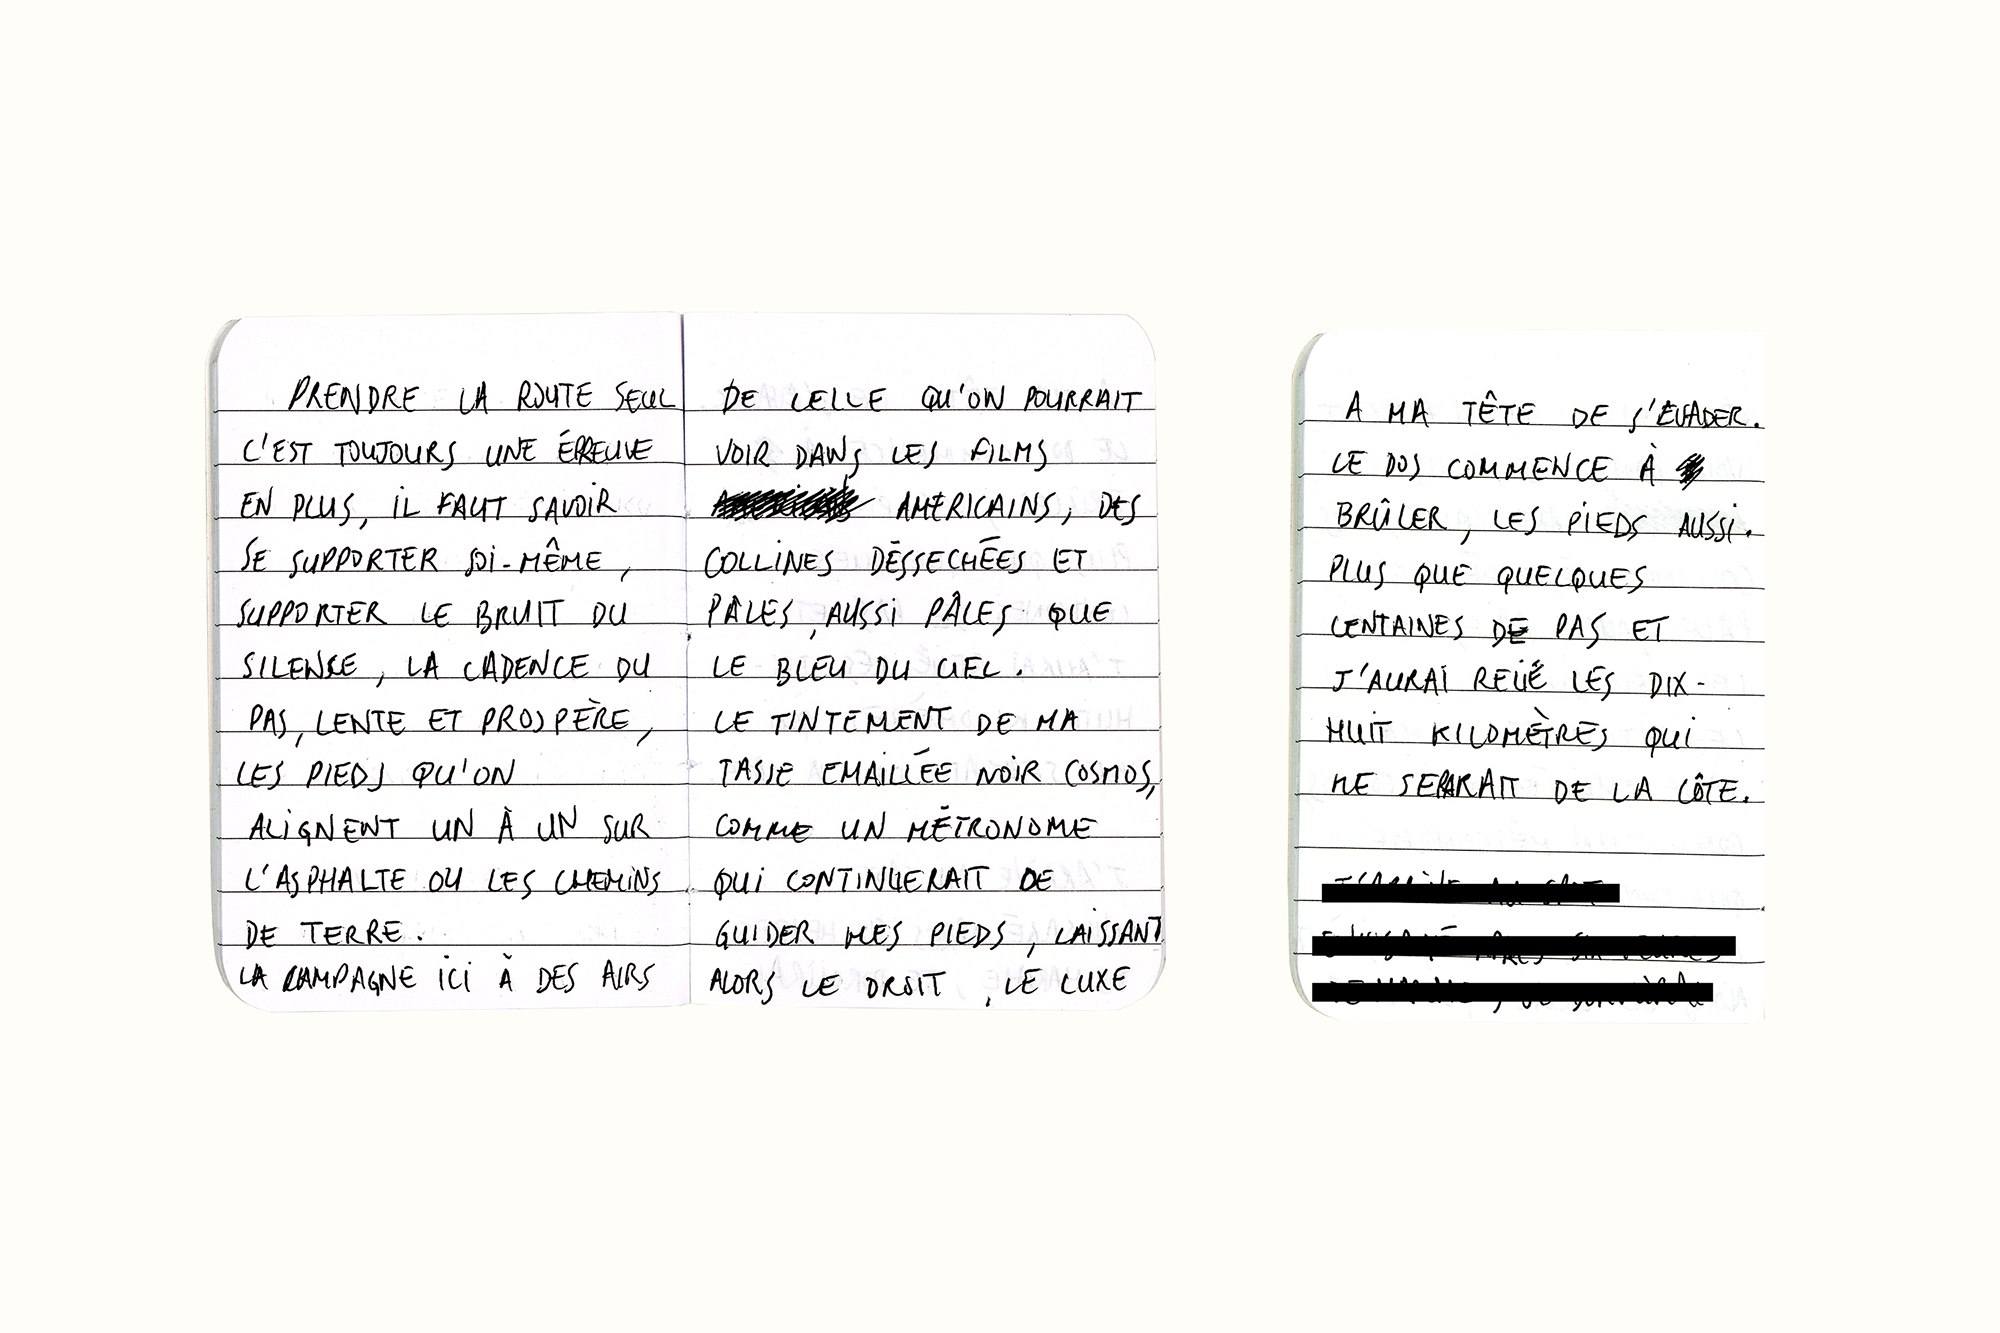 PRENDRE LA ROUTE SEUL
C'EST TOUJOURS UNE ÉPREUVE
EN PLUS, IL FAUT SAVOIR
SE SUPPORTER SOI-MÊME,
SUPPORTER LE BRUIT DU
SILENCE, LA CADENCE DU
PAS, LENTE ET PROSPÈRE,
LES PIEDS QU'ON
ALIGNENT UN À UN SUR
L'ASPHALTE OU LES CHEMINS
DE TERRE.
LA CAMPAGNE ICI À DES AIRS
DE CELLE QU'ON POURRAIT
VOIR DANS LES FILMS
AMÉRICAINS, DES
COLLINES DÉSSECHÉES ET
PÂLES, AUSSI PÂLES QUE
LE BLEU DU CIEL.
LE TINTEMENT DE MA
TASSE EMAILLÉE NOIR COSMOS,
COMME UN MÉTRONOME
QUI CONTINUERAIT DE
GUIDER MES PIEDS, LAISSANT
ALORS LE DROIT, LE LUXE
A MA TÊTE DE S'ÉVADER.
LE DOS COMMENCE À
BRÛLER, LES PIEDS AUSSI.
PLUS QUE QUELQUES
CENTAINES DE PAS ET
J'AURAI RELIÉ LES DIX-
HUIT KILOMÈTRES QUI
ME SEPARAIT DE LA CÔTE.